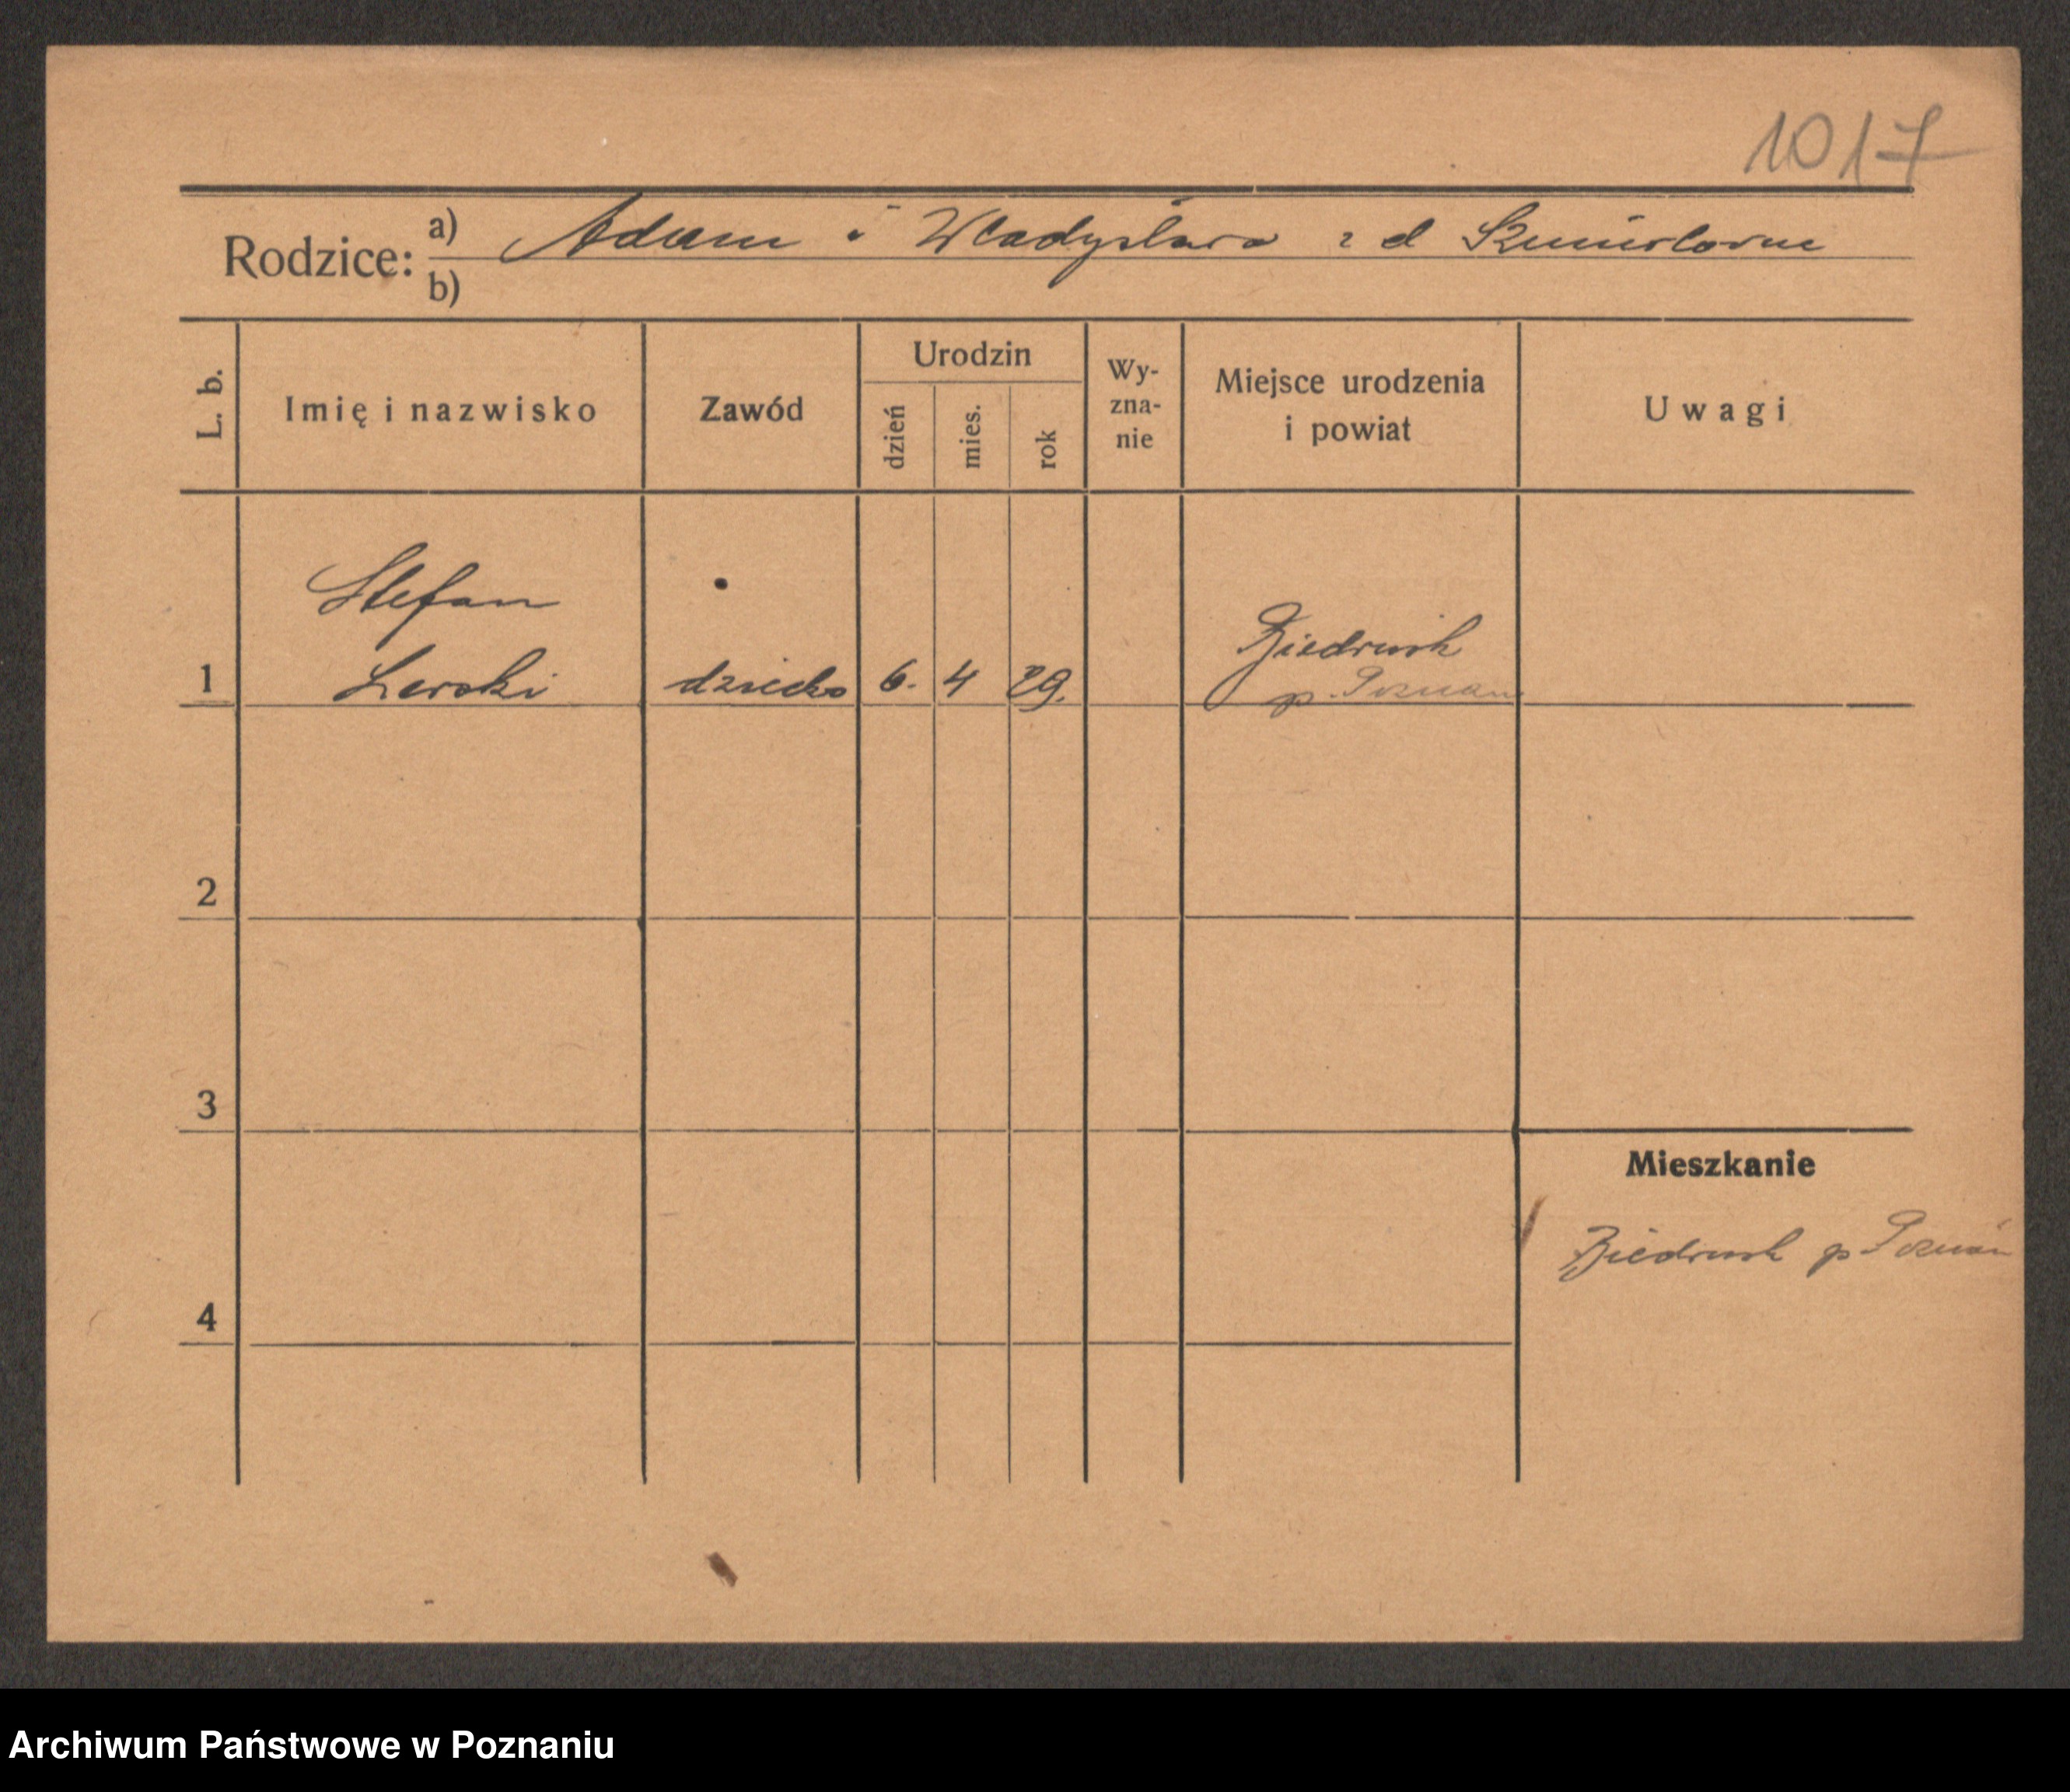 1017
Rodzice: a) Adam i Władysława z d
b)
L. b.
Imię i nazwisko
Zawód
Urodzin
dzień
mies.
rok
Wy-
zna-
nie
Miejsce urodzenia
i powiat
Uwagi
Stefan
1 Lerski dziecko 6. 4 29. Biedrusk
p. Poznań
2
3
Mieszkanie
Biedrusk p Poznań
4
Archiwum Państwowe w Poznaniu